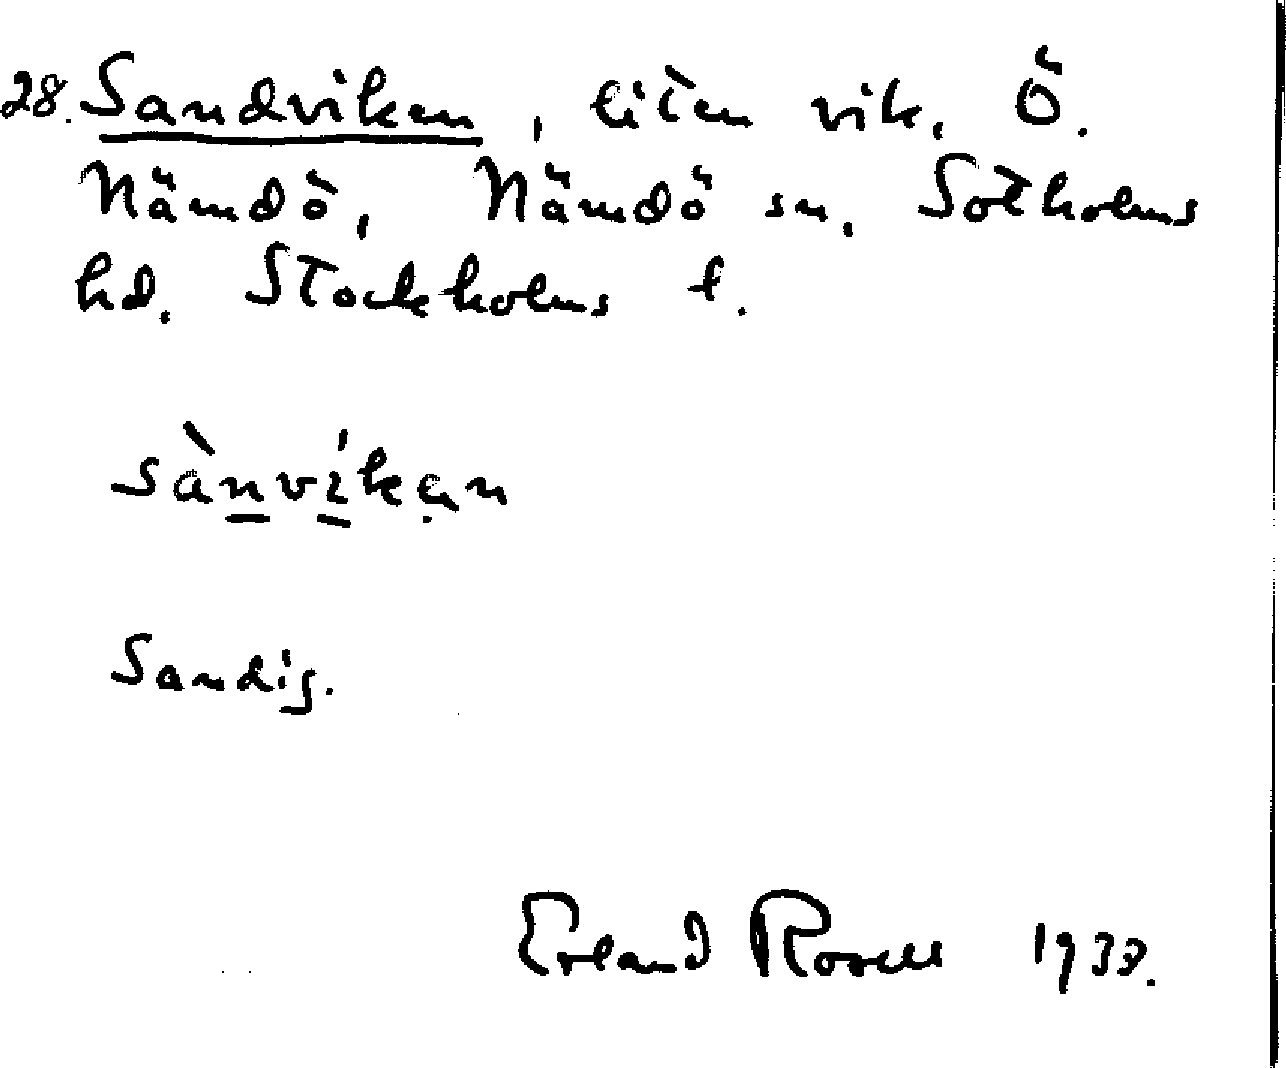 28. Sandviken, liten vik, Ö.
Nämdö, Nämdö sn, Sotholms
hd. Stockholms l.
sànvíkən
Sandig.
Erland Rosell 1933.